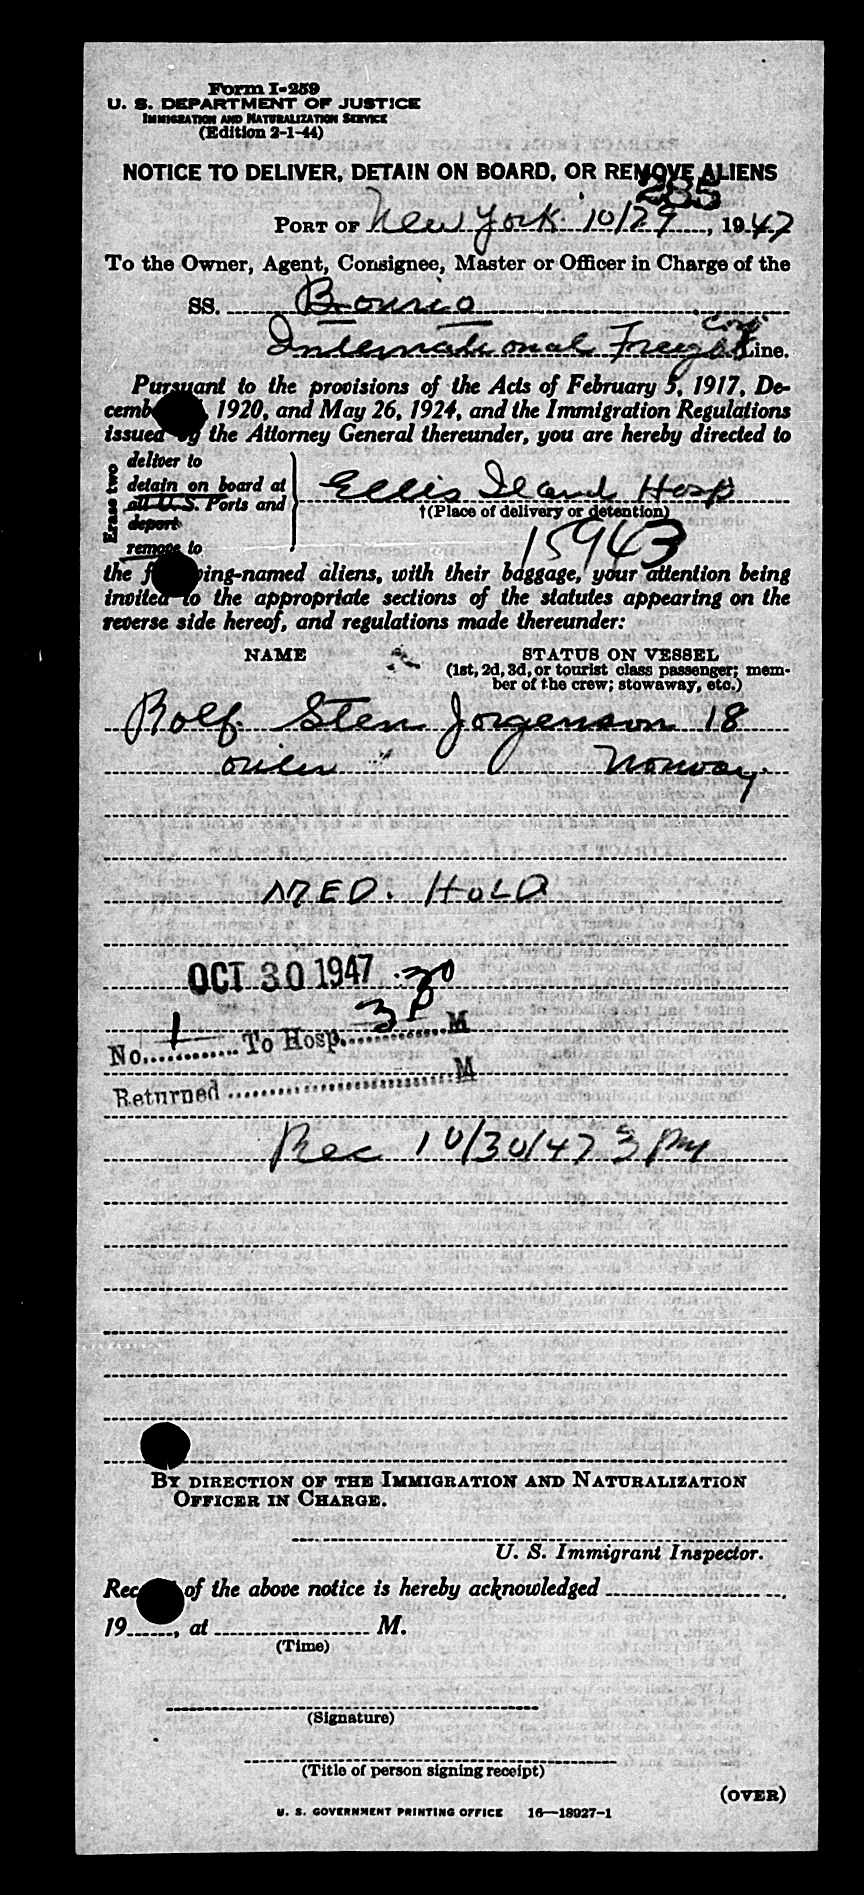 Form I-259
U. S. DEPARTMENT OF JUSTICE
IMMIGRATION AND NATURALIZATION SERVICE
(Edition 2-1-44)
NOTICE TO DELIVER, DETAIN ON BOARD, OR REMOVE ALIENS
235
PORT OF New York 10/29, 1947
To the Owner, Agent, Consignee, Master or Officer in Charge of the
SS.
International Freight Corp Line.
Pursuant to the provisions of the Acts of February 5, 1917, De-
1920, and May 26, 1924, and the Immigration Regulations
issued by the Attorney General thereunder, you are hereby directed to
Erase two
deliver to
detain on board at
all U.S. Ports and
deport
remove to
Ellis Island Hosp
†(Place of delivery or detention)
15943
the ing-named aliens, with their baggage, your attention being
invited to the appropriate sections of the statutes appearing on the
reverse side hereof, and regulations made thereunder:
NAME STATUS ON VESSEL
(1st, 2d, 3d, or tourist class passenger; mem-
ber of the crew; stowaway, etc.)
Rolf Sten Jorgenson 18
oiler Norway
MED. HOLD
OCT 30 1947 30
No. 1 To Hosp. 3 P M
Returned M
Rec 10/30/47 3 PM
BY DIRECTION OF THE IMMIGRATION AND NATURALIZATION
OFFICER IN CHARGE.
U. S. Immigrant Inspector.
Rec of the above notice is hereby acknowledged
19, at M.
(Time)
(Signature)
(Title of person signing receipt)
(OVER)
U. S. GOVERNMENT PRINTING OFFICE 16—18027-1